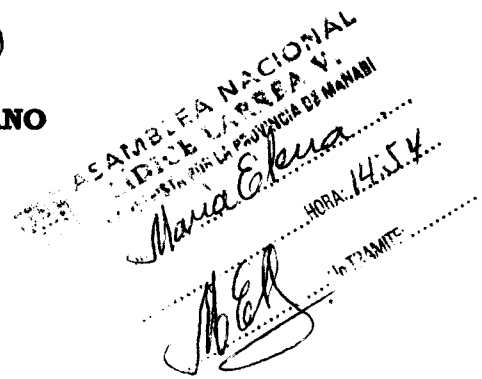 ANO
ASAMBLEA NACIONAL
LARREA V.
POR LA PROVINCIA DE MANABI
Maria Elena
HORA: 14:54
TRAMITE